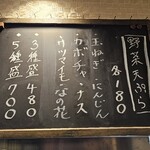 野菜天ぷら
各180
・玉ねぎ・にんじん
・カボチャ・ナス
・サツマイモ・なの花
・3種盛480
・5種盛700